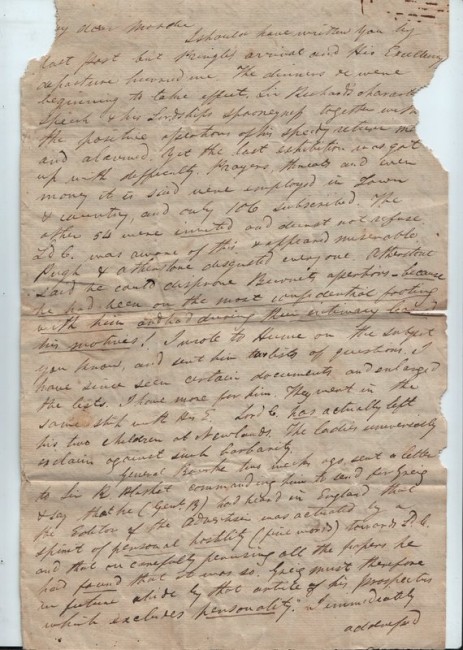 my dear Moodie
I should have written you by
last post but Pringle's arrival and His Excellency
departure hurried me. The dinners &c were
beginning to take effect, Sir Richard's
Speech & his Lordship's together with
the positive assertions of his speedy return me
and alarmed. Yet the last exhibition was got
up with difficulty. Prayers, threats and even
money it is said were employed in Town
& country, and only 106 subscribed. The
other 54 were invited and durst not refuse
Ld C. was aware of this & appeared miserable.
& disgusted everyone.
said he could disprove assertions - because
he had been on the most confidential footing
with him and had during their intimacy
his motives! I wrote to Hume on the subject
you know, and sent him two lists of questions. I
have since seen certain documents and enlarged
the lists. I have more for him. They went in the
same ship with His E. Lord C. has actually left
his two children at Newlands. The ladies universally
exclaim against such barbarity.
General Bourke two weeks ago sent a letter
to Sir R Plasket commanding him to send for Greig
& say that he (Genl B) had heard in England that
the Editor of the Advertiser was actuated by a
spirit of personal hostility (fine words) towards Ld C.
and that on carefully perusing all the papers he
had found that it was so. Greig must therefore
in future abide by that article of his prospectus
which excludes personality. "I immediately
addressed